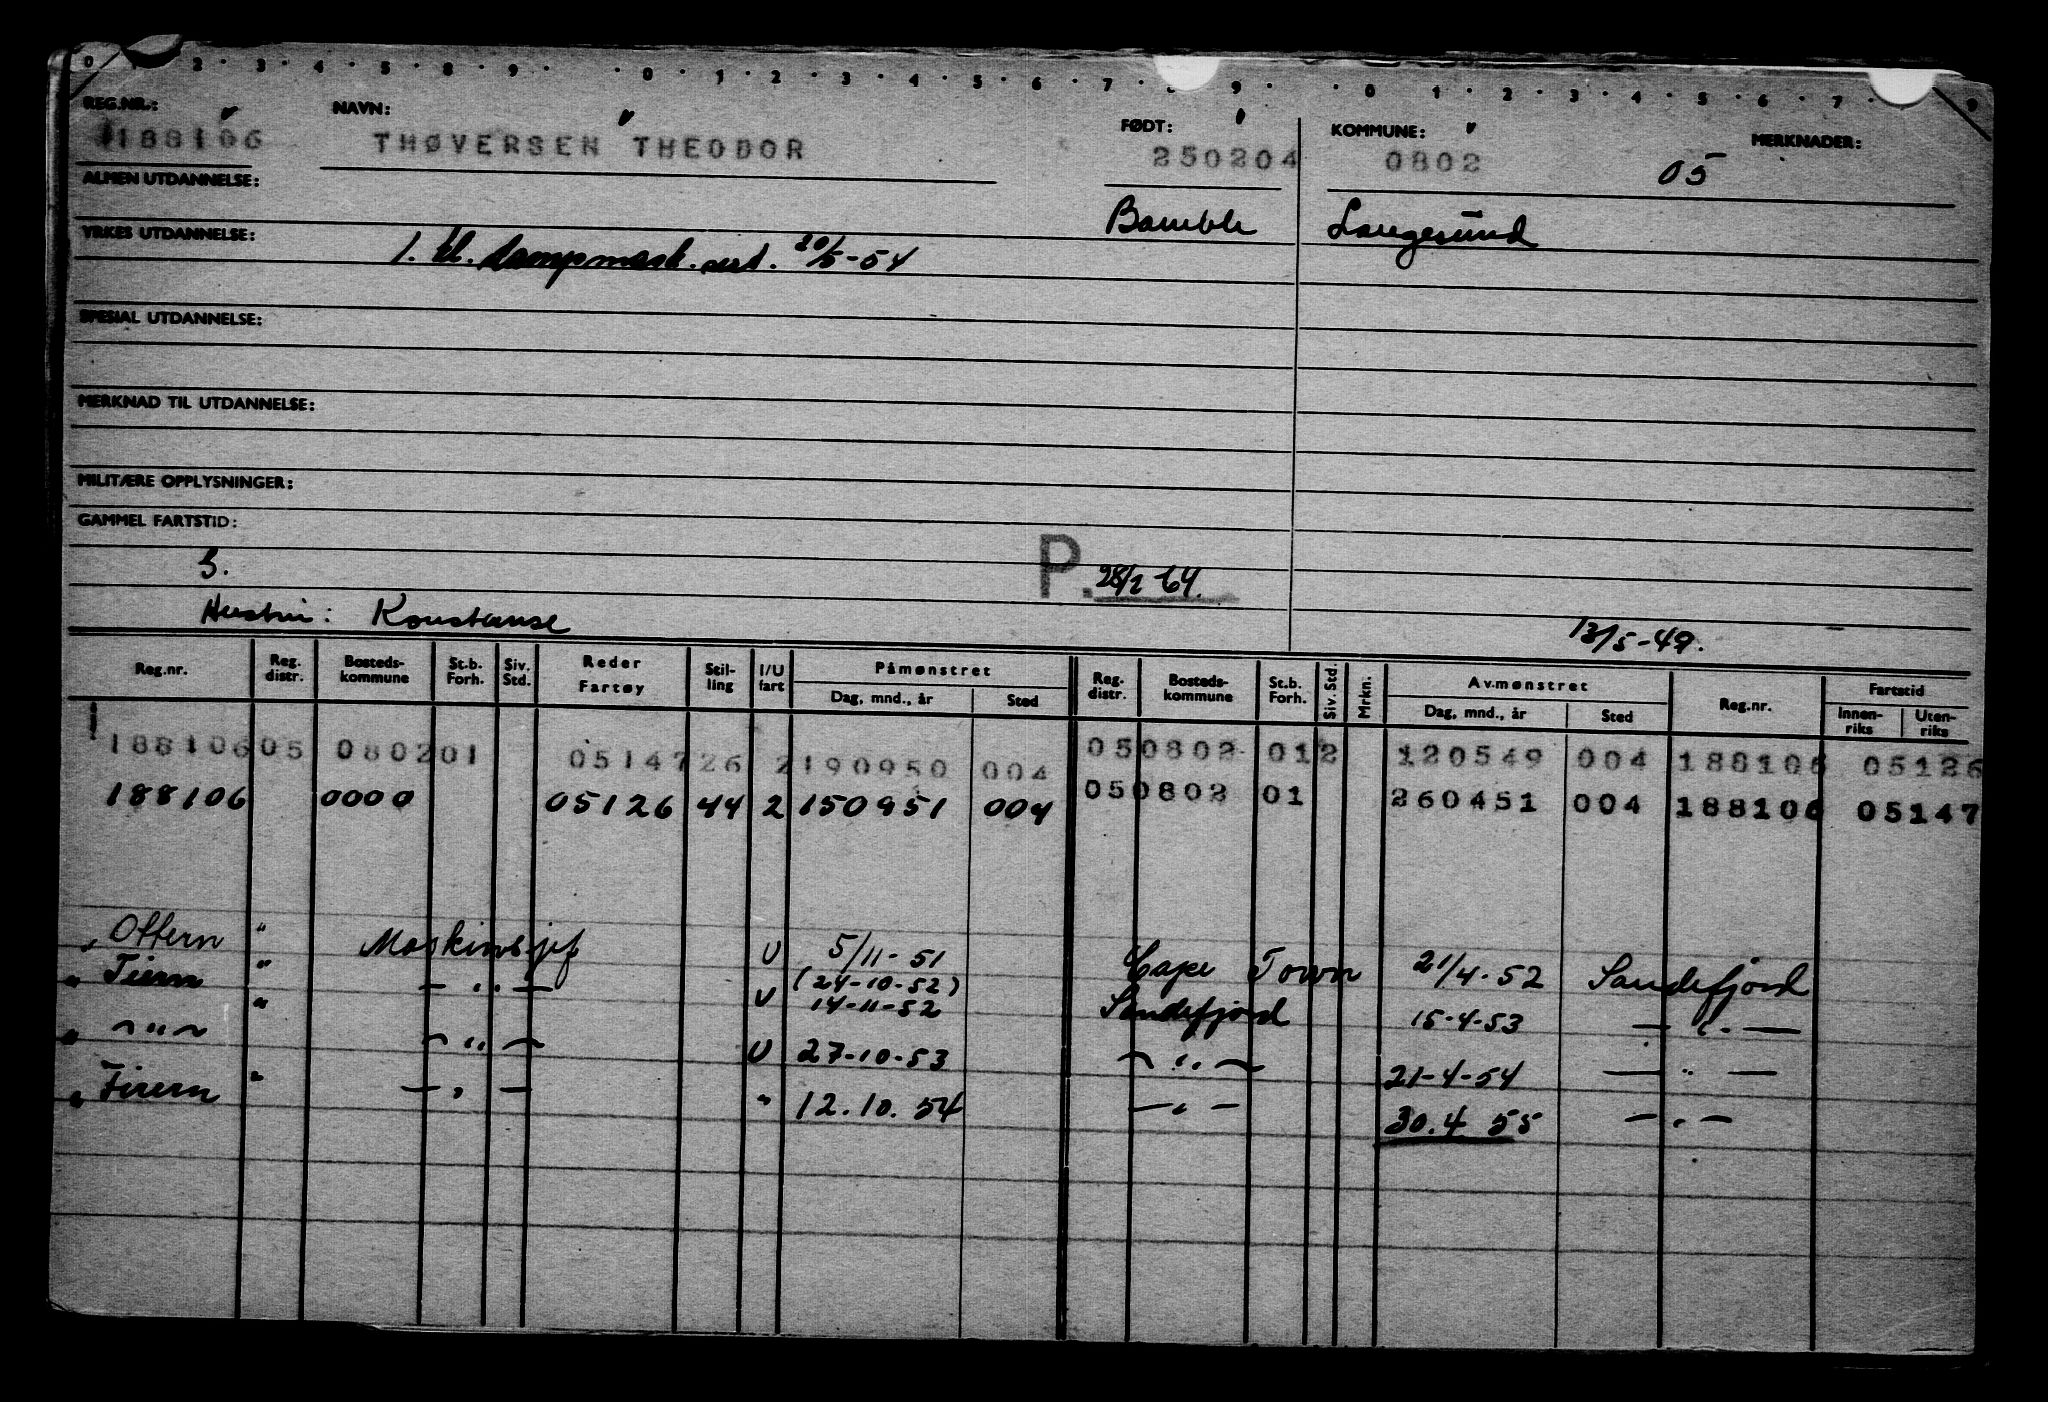 0 2 · 3 · 4 · 5 · 8 · 9 · · 0 · 1 · 2 · 3 · 4 · 5 · 6 · 7 · 9 · · 0 · 1 · 2 · 3 · 4 · 5 · 6 · 7 · 9
REG.NR.: NAVN: FØDT: KOMMUNE: MERKNADER:
188106 THØVERSEN THEODOR 250204 0802 05
ALMEN UTDANNELSE:
Bamble Langesund
YRKES UTDANNELSE:
1. kl. dampmask. sert. 20/5-54
SPESIAL UTDANNELSE:
MERKNAD TIL UTDANNELSE:
MILITÆRE OPPLYSNINGER:
GAMMEL FARTSTID:
P. 28/1-64.
Hustru: Konstanse 13/5-49.
Reg.nr. Reg. distr. Bosteds-kommune St.b. Forh. Siv. Std. Reder Fartøy Stil-ling I/U fart Påmønstret Dag, mnd., år Sted Reg. distr. Bosteds-kommune St.b. Forh. Siv. Std. Mrkn. Avmønstret Dag, mnd., år Sted Reg.nr. Fartstid Innen-riks Uten-riks
188106 05 0802 01 05147 26 2 190950 004 05 0802 01 2 120549 004 188106 05126
188106 0000 05126 44 2 150951 004 05 0802 01 260451 004 188106 05147
" Ottern " Maskinsjef U 5/11-51 Cape Town 21/4-52 Sandefjord
(24-10-52)
" " — " — U 14-11-52 Sandefjord 15-4-53 — " —
" — " — — " — U 27-10-53 — " — 21-4-54 — " —
" " — " — " 12.10.54 — " — 30.4 55 — " —